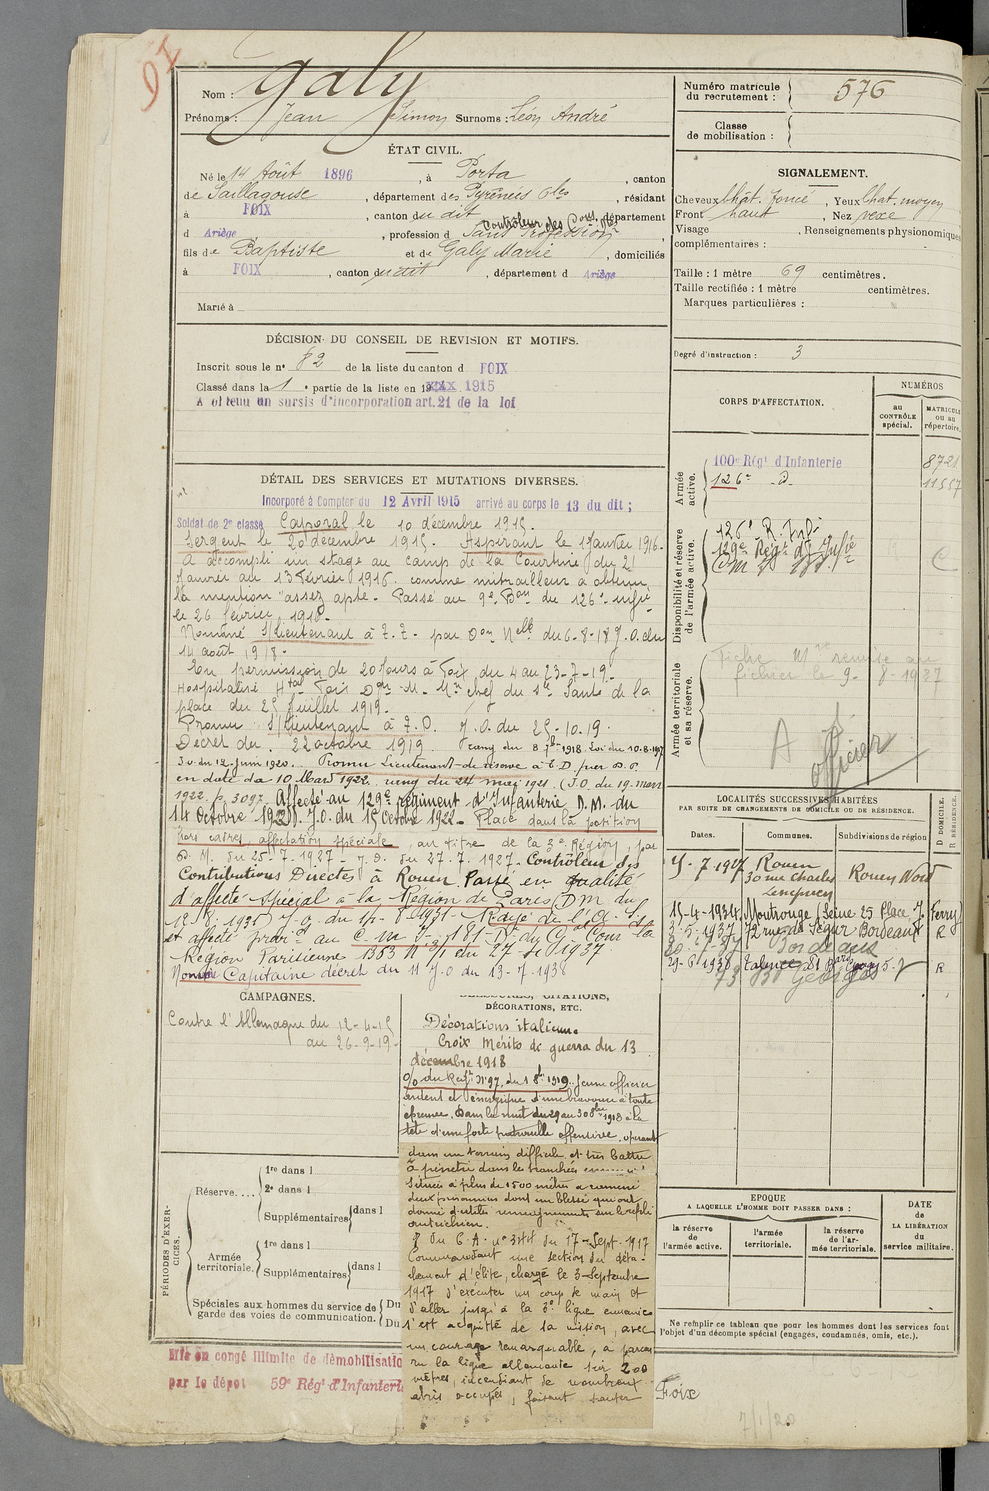 91
Nom : Galy
Prénoms : Jean Simon Surnoms : Léon André
ÉTAT CIVIL.
Né le 14 Août 1896, à Porta, canton
de Saillagouse, département des Pyrénées Oles, résidant
à FOIX, canton du dit, département
Contrôleur des Cons.
d Ariège, profession d Sans Profession,
fils de Baptiste et de Galy Marie, domiciliés
à FOIX, canton du dit, département d Ariège
Marié à
DÉCISION DU CONSEIL DE REVISION ET MOTIFS.
Inscrit sous le n° 82 de la liste du canton d FOIX
Classé dans la 1e partie de la liste en 1915
A obtenu un sursis d'incorporation art. 21 de la loi
DÉTAIL DES SERVICES ET MUTATIONS DIVERSES.
Incorporé à Compter du 12 Avril 1915 arrivé au corps le 13 du dit ;
Soldat de 2e classe Caporal le 10 décembre 1915.
Sergent le 20 décembre 1915. Aspirant le 1 Janvier 1916.
A accompli un stage au camp de la Courtine du 21
Janvier au 13 Février 1916 comme mitrailleur a obtenu
la mention "assez apte. Passé au 9e Bon du 126e infie
le 26 février 1916.
Nommé S/Lieutenant à T.T. par Don Nelle du 6-8-18 J.O. du
14 août 1918.
En permission de 20 Jours à Foix du 4 au 23-7-19.
Hospitalisé Htal Foix Don M. Min chef du Sce Santé de la
place du 25 Juillet 1919.
Promu S/Lieutenant à T.D. J.O. du 25-10-19.
Décret du 22 octobre 1919. rang du 8 7bre 1918. Loi du 10.8.1917
J.O. du 12 Juin 1920. Promu Lieutenant de réserve à T.D par D.P.
en date du 10 Mars 1922. rang du 24 mai 1921 (J.O. du 19 mars
1922. p. 3097. Affecté au 129e régiment d'Infanterie D.M. du
14 Octobre 1922. J.O. du 15 Octobre 1922. Placé dans la position
hors cadres, affectation spéciale, au titre de la 3e Région, par
D. M. du 25-7-1927 - J.O. du 27.7.1927. Contrôleur des
Contributions Directes à Rouen. Passé en qualité
d'affecté spécial à la Région de Paris DM du
J.O. du Rayé de l'A.S.
et affecté au C.M.I. 181
Région Parisienne 1353 du 27
Nommé Capitaine décret du 11 J.O du 13-7-1938
CAMPAGNES.
Contre l'Allemagne du 12-4-15
au 26-9-19-
BLESSURES, CITATIONS,
DÉCORATIONS, ETC.
Décorations italienne
Croix Mérito de guerra du 13
décembre 1918
O/ du Regt N°97. du 1 8bre 1919. Jeune officier
ardent et énergique d'une bravoure à toute
épreuve. Dans la nuit du 29 au 30 8bre 1918 à la
tête d'une forte patrouille offensive, opérant
dans un terrain difficile et très battu
a pénétré dans les tranchées
situées à plus de 1500 mètres a ramené
deux prisonniers dont un blessé qui ont
donné d'utiles renseignements sur le repli
autrichien.
O du C.A. n° du 17-Sept-1917
Commandant une section du déta-
chement d'élite, chargé le 3-Septembre
1917 d'exécuter un coup de main et
d'aller jusqu'à la 3e ligne ennemie
s'est acquitté de sa mission, avec
un courage remarquable, a parcou
ru la ligne allemande sur 200
mètres, incendiant de nombreux
abris occupés, faisant sauter
PÉRIODES D'EXERCICES.
Réserve....
1re dans l
2e dans l
Supplémentaires dans l
Armée territoriale.
1re dans l
Supplémentaires dans l
Spéciales aux hommes du service de garde des voies de communication.
Du
Du
Mis en congé illimité de démobilisatio
par le dépôt 59e Régt d'Infanterie
Foix
7/1/20
Numéro matricule du recrutement : 576
Classe de mobilisation :
SIGNALEMENT.
Cheveux Chât. foncé, Yeux Chat. moyen
Front haut, Nez vexe
Visage, Renseignements physionomiques
complémentaires :
Taille : 1 mètre 69 centimètres.
Taille rectifiée : 1 mètre centimètres.
Marques particulières :
Degré d'instruction : 3
CORPS D'AFFECTATION.
NUMÉROS
au CONTRÔLE spécial.
MATRICULE ou au répertoire.
Armée active.
100e Régt d'Infanterie 8721
126e d° 11557
Disponibilité et réserve de l'armée active.
126e R. Inf
129e Régt d'Infie
Armée territoriale et sa réserve.
Fiche Mle remise au
fichier le 9-8-1927
A officier
LOCALITÉS SUCCESSIVES HABITÉES
PAR SUITE DE CHANGEMENTS DE DOMICILE OU DE RÉSIDENCE.
Dates.
Communes.
Subdivisions de région
D. DOMICILE.
R. RÉSIDENCE.
5-7-1927 Rouen Rouen Nord
30 rue Charles
Lenepveu
15-4-1934 Montrouge (Seine 25 Place J. Ferry)
3.5.1937 72 rue de Ségur Bordeaux R
Bordeaux
29-6-1938 Talence R
EPOQUE
A LAQUELLE L'HOMME DOIT PASSER DANS :
la réserve de l'armée active.
l'armée territoriale.
la réserve de l'armée territoriale.
DATE de LA LIBÉRATION du service militaire.
Ne remplir ce tableau que pour les hommes dont les services font
l'objet d'un décompte spécial (engagés, condamnés, omis, etc.).